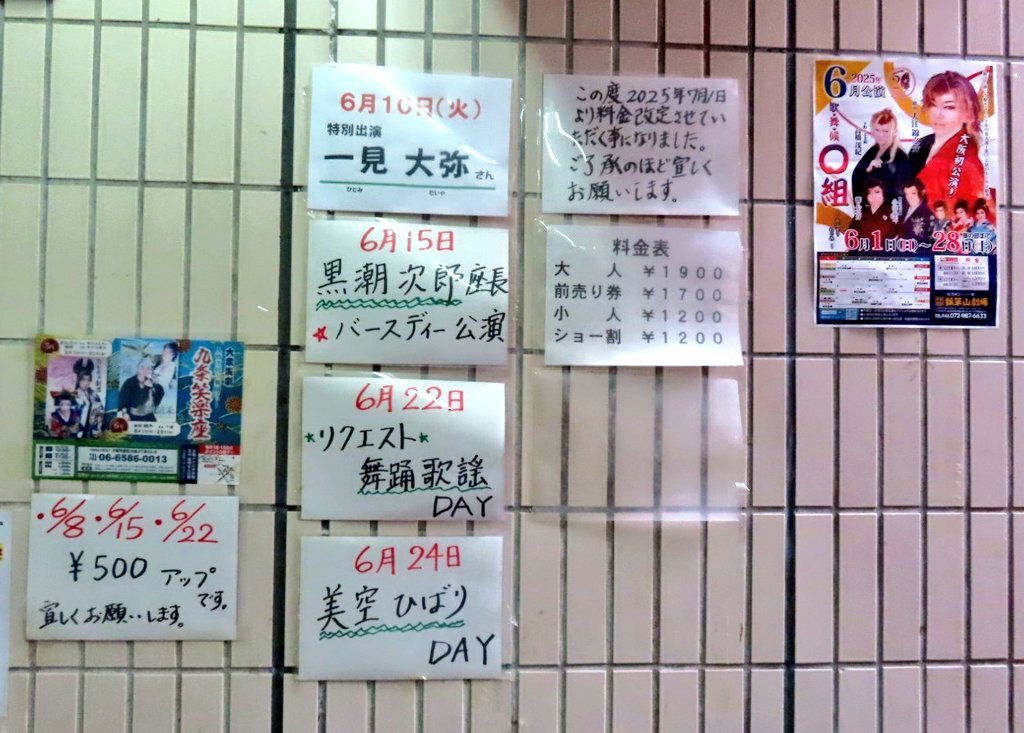 6月10日(火)
特別出演
一見 大弥 さん
ひとみ だいや
6月15日
黒潮 次郎 座長
★バースディー公演
6月22日
★リクエスト★
舞踊歌謡
DAY
6月24日
美空 ひばり
DAY
この度2025年7月1日
より料金改定させてい
ただく事になりました。
ご了承のほど宜しく
お願いします。
料金表
大 人 ¥1900
前売り券 ¥1700
小 人 ¥1200
ショー割 ¥1200
大衆演劇
九条笑楽座
06-6586-0013
・6/8・6/15・6/22
¥500 アップ
です。
宜しくお願いします。
6 2025年
月公演
歌・舞・伎
〇組
大阪初公演!
6月1日(日)~28日(土)
飯盛山劇場
TEL/FAX.072-987-6633